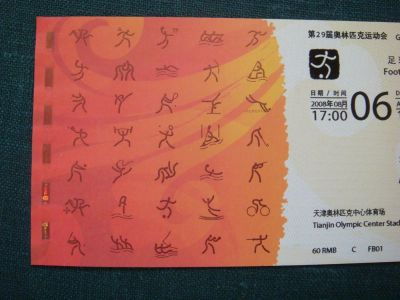 第29届奥林匹克运动会 G
足
Foot
日期 / 时间
2008年08月 06
17:00
天津奥林匹克中心体育场
Tianjin Olympic Center Stad
60 RMB C FB01